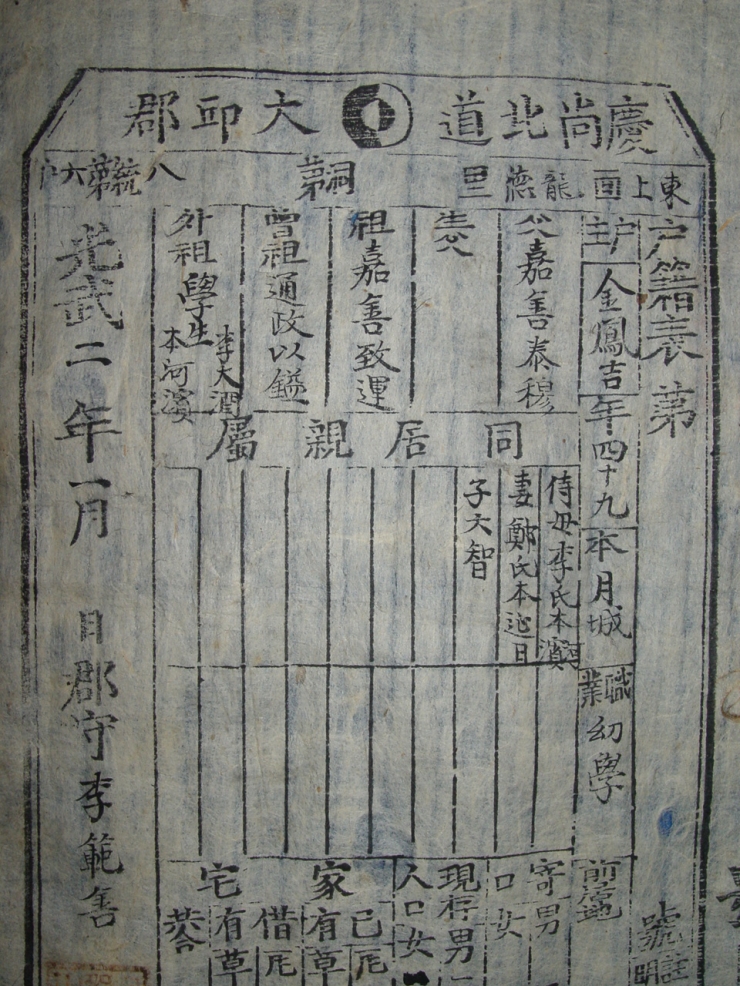 慶尚北道 大邱郡
東上面 龍德里 第 洞 第八統 第六戶
戶籍表 第
戶主 金鳳吉 年四十九 本月城 職業 幼學
父嘉善泰穆
生父
祖嘉善致運
曾祖通政以鎰
外祖學生李大潤 本河濱
同居親屬
侍母李氏本河濱
妻鄭氏本延日
子大智
前居地
寄口 男 女
現存人口 男 女
家宅
己有 瓦 草
借有 瓦 草
共合
號
光武二年一月 日 郡守李範善